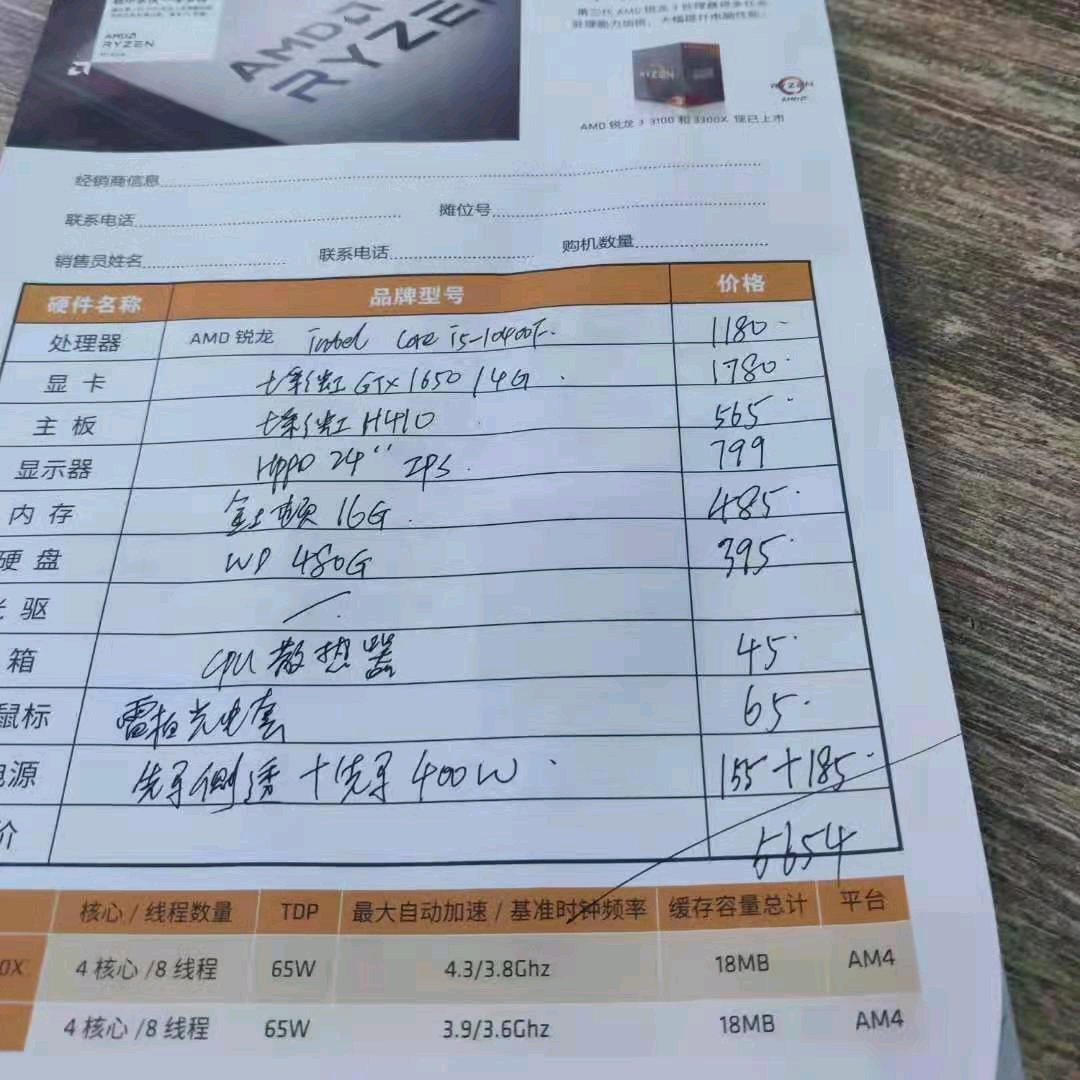 AMD
RYZEN
AMD
RYZEN
第三代 AMD 锐龙 3 处理器
RYZEN
RYZEN
AMD
AMD 锐龙 3 3100 和 3300X 现已上市
经销商信息
联系电话 摊位号
销售员姓名 联系电话 购机数量
硬件名称 品牌型号 价格
处理器 AMD 锐龙 intel Core i5-10400F. 1180.
显 卡 七彩虹 GTX 1650 /4G . 1780.
主 板 七彩虹 H410 . 565.
显示器 24" IPS. 799
内 存 金士顿 16G. 485.
硬 盘 WD 480G 395.
驱 /.
箱 CPU 散热器 45.
鼠标 雷柏光电套 65.
源 先马侧透 + 先马 400W . 155+185.
价 5654
核心 / 线程数量 TDP 最大自动加速 / 基准时钟频率 缓存容量总计 平台
0X 4 核心 /8 线程 65W 4.3/3.8Ghz 18MB AM4
4 核心 /8 线程 65W 3.9/3.6Ghz 18MB AM4